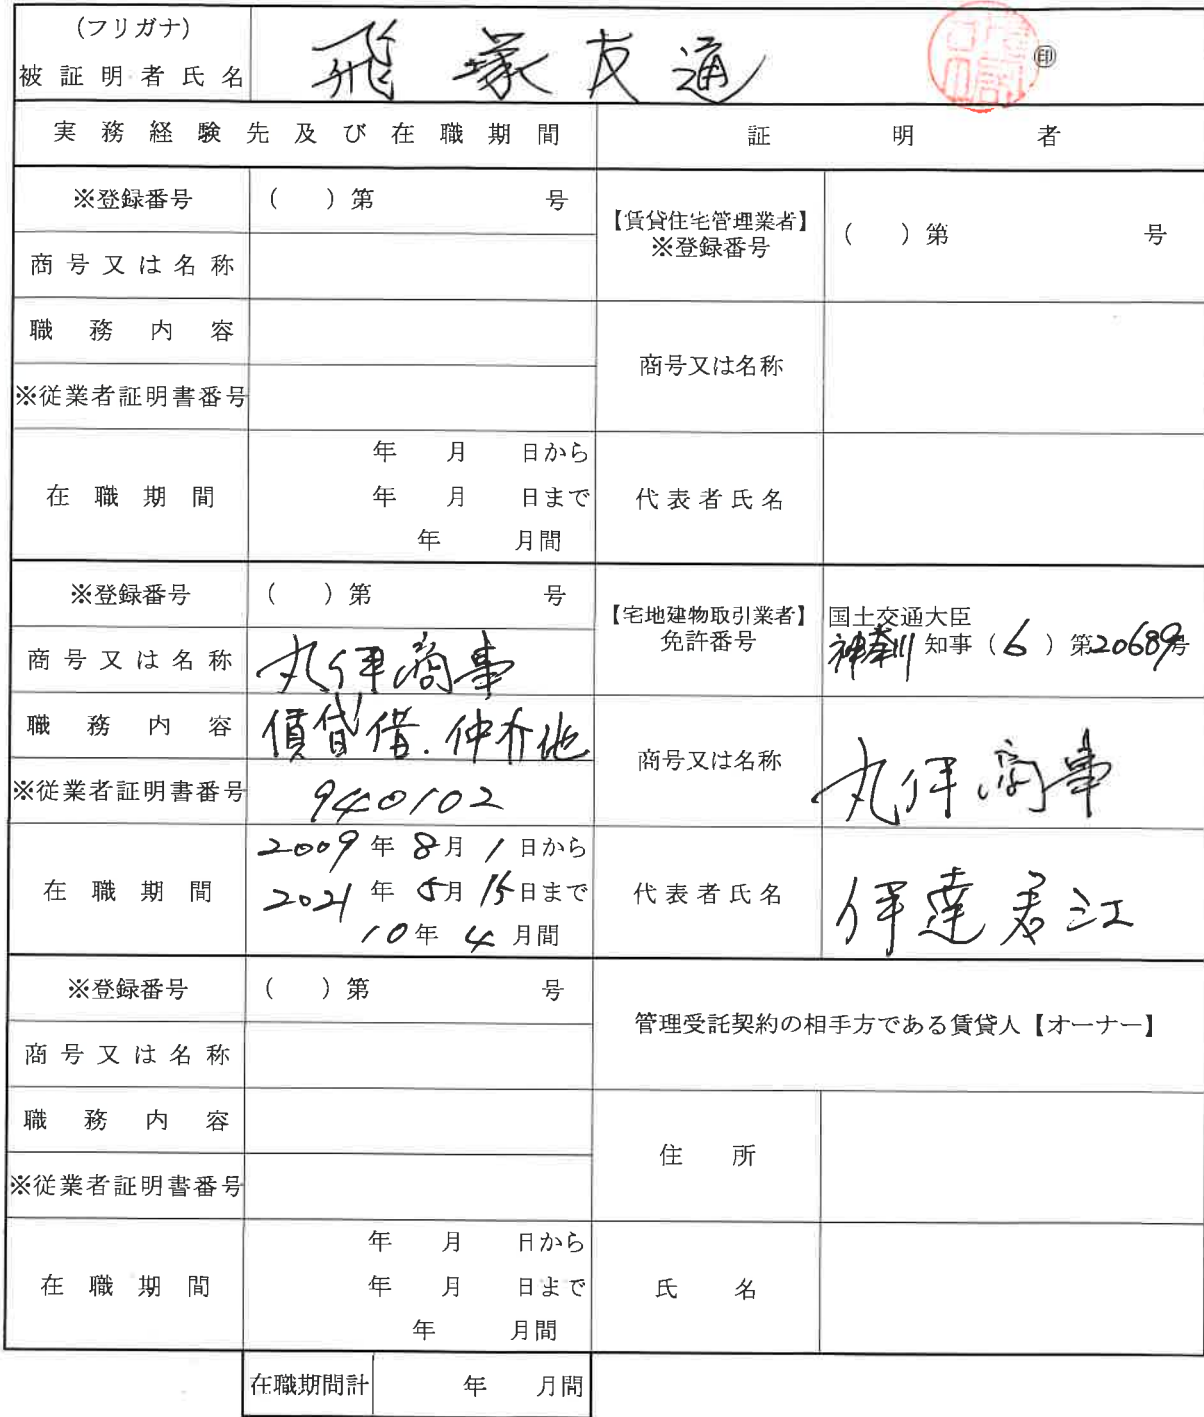 (フリガナ)
被証明者氏名 飛塚友通 ㊞
実務経験先及び在職期間 証明者
※登録番号 ( )第 号
商号又は名称
職務内容
※従業者証明書番号
在職期間
年 月 日から
年 月 日まで
年 月間
【賃貸住宅管理業者】
※登録番号 ( )第 号
商号又は名称
代表者氏名
※登録番号 ( )第 号
商号又は名称 丸伊商事
職務内容 賃貸借.仲介他
※従業者証明書番号 940102
在職期間
2009年8月1日から
2021年5月15日まで
10年4月間
【宅地建物取引業者】
免許番号
国土交通大臣
神奈川知事(6)第20689号
商号又は名称 丸伊商事
代表者氏名 伊達君江
※登録番号 ( )第 号
商号又は名称
職務内容
※従業者証明書番号
在職期間
年 月 日から
年 月 日まで
年 月間
管理受託契約の相手方である賃貸人【オーナー】
住所
氏名
在職期間計 年 月間